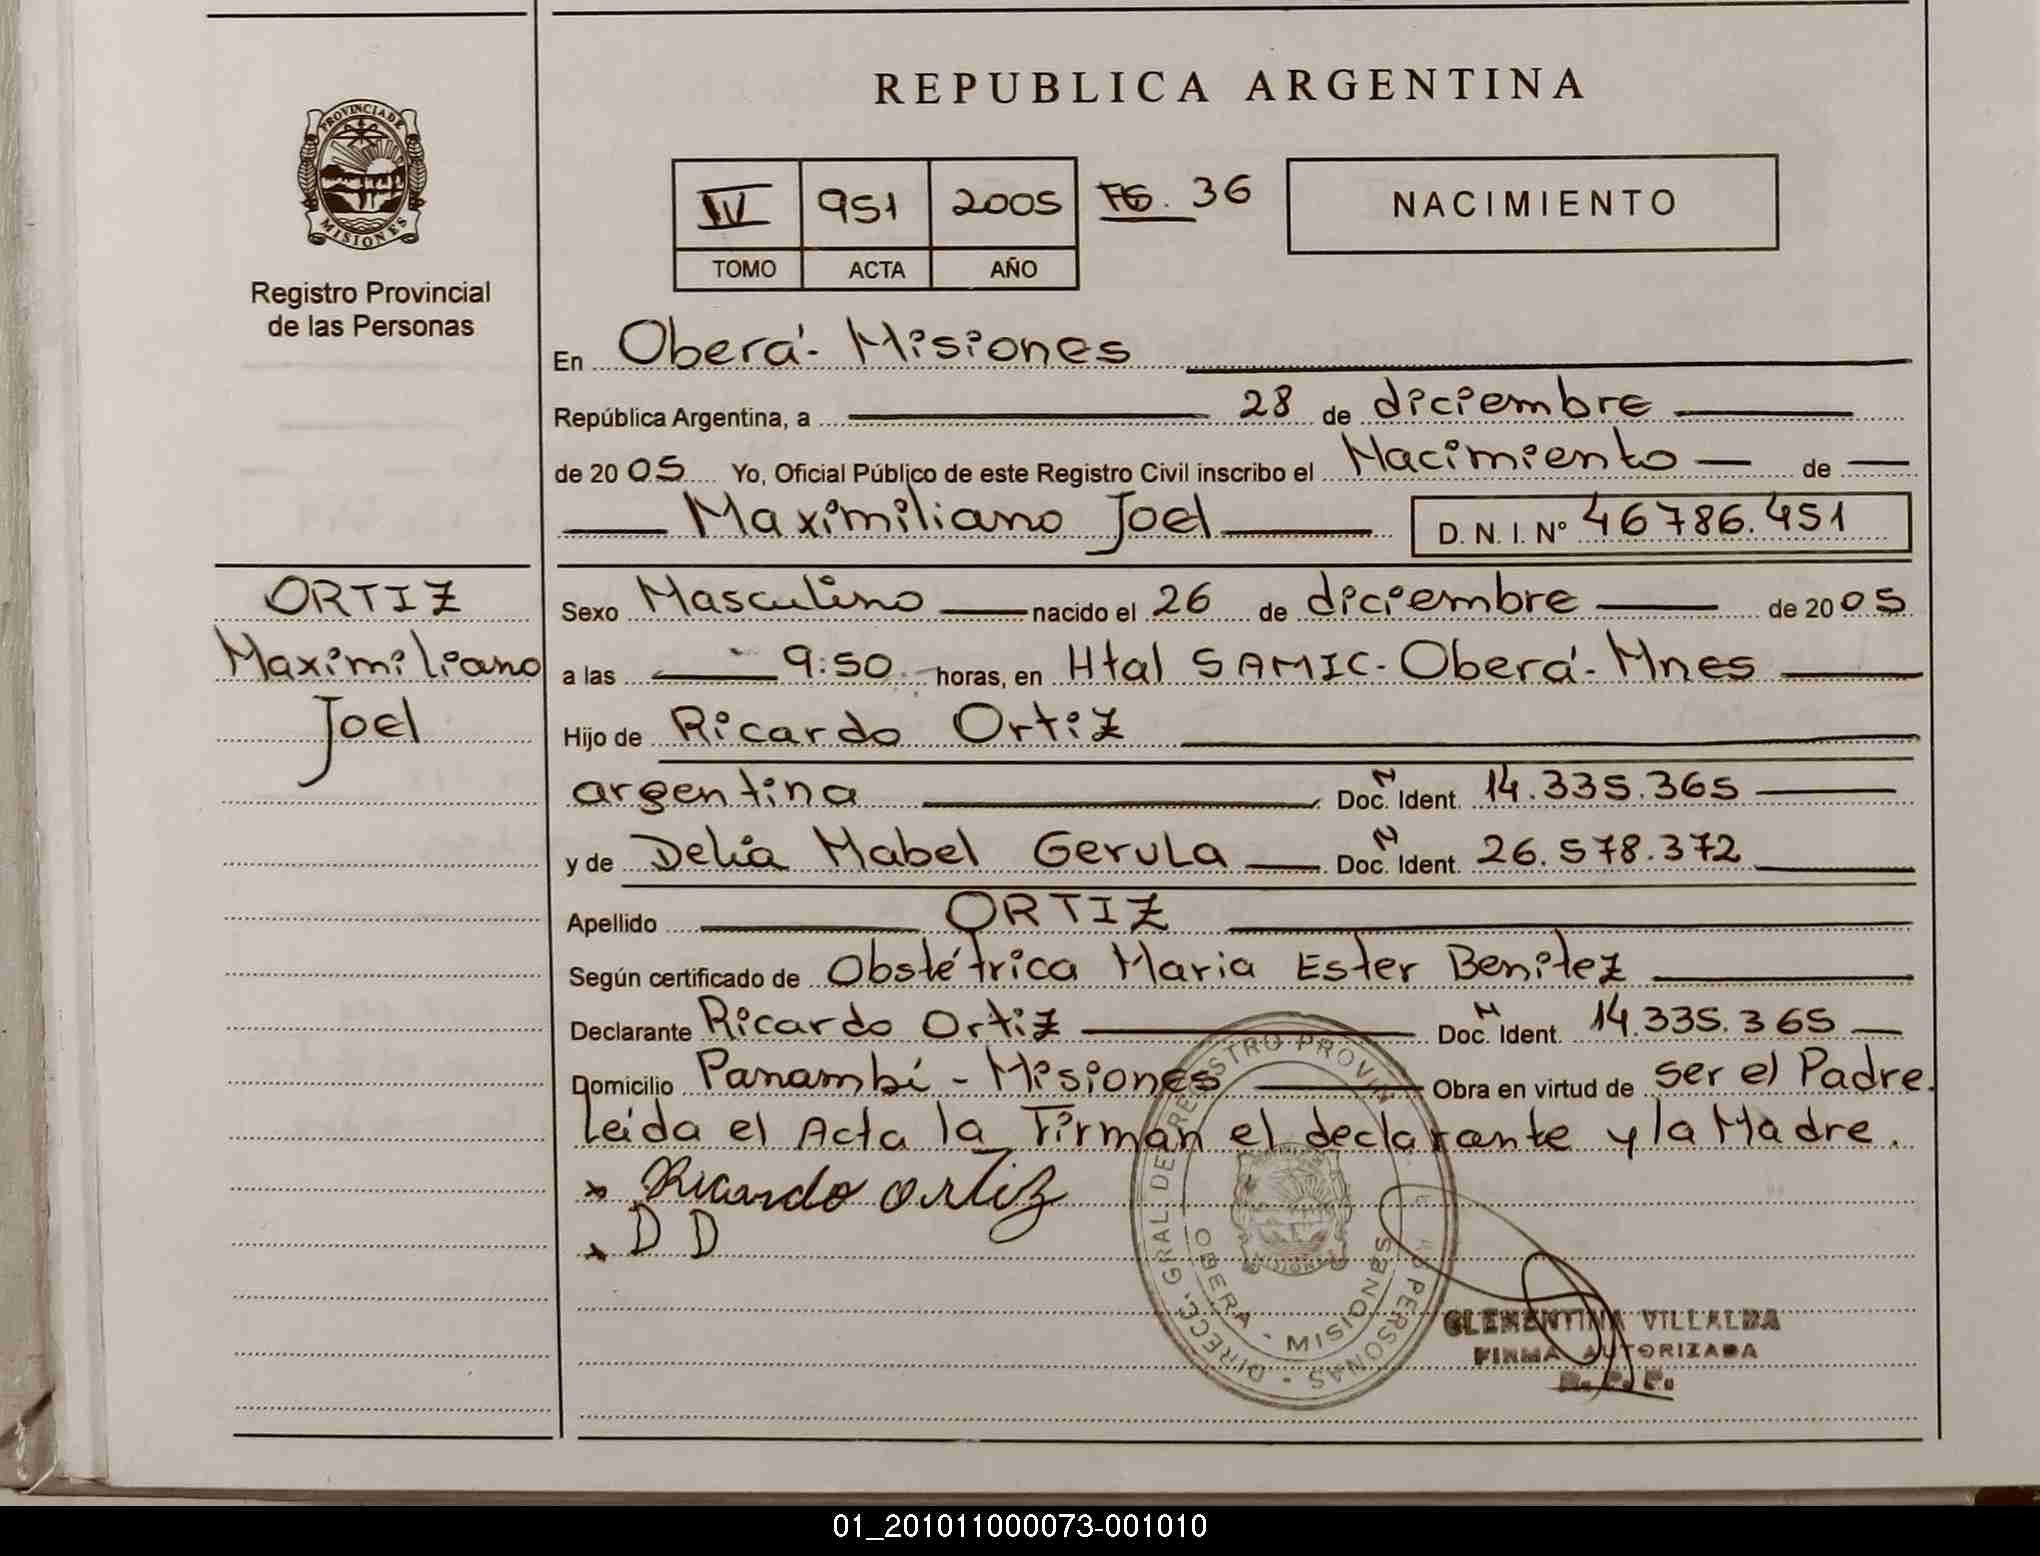 REPUBLICA ARGENTINA
PROVINCIA DE
MISIONES
Registro Provincial
de las Personas
IV 951 2005 FG. 36
TOMO ACTA AÑO
NACIMIENTO
En Oberá - Misiones
República Argentina, a 28 de diciembre
de 2005 Yo, Oficial Público de este Registro Civil inscribo el Nacimiento de
Maximiliano Joel D. N. I. Nº 46786.451
ORTIZ
Maximiliano
Joel
Sexo Masculino nacido el 26 de diciembre de 2005
a las 9:50 horas, en Htal SAMIC - Oberá - Mnes
Hijo de Ricardo Ortiz
argentina Doc. N Ident. 14.335.365
y de Delia Mabel Gerula Doc. N Ident. 26.578.372
Apellido ORTIZ
Según certificado de Obstétrica Maria Ester Benitez
Declarante Ricardo Ortiz Doc. N Ident. 14.335.365
Domicilio Panambí - Misiones Obra en virtud de ser el Padre.
Leída el Acta la Firman el declarante y la Madre.
x Ricardo ortiz
x D D
DIRECC. GRAL DE REGISTRO PROVIN PERSONAS
OBERA - MISIONES
CLEMENTINA VILLALBA
FIRMA AUTORIZADA
R. P. P.
01_201011000073-001010